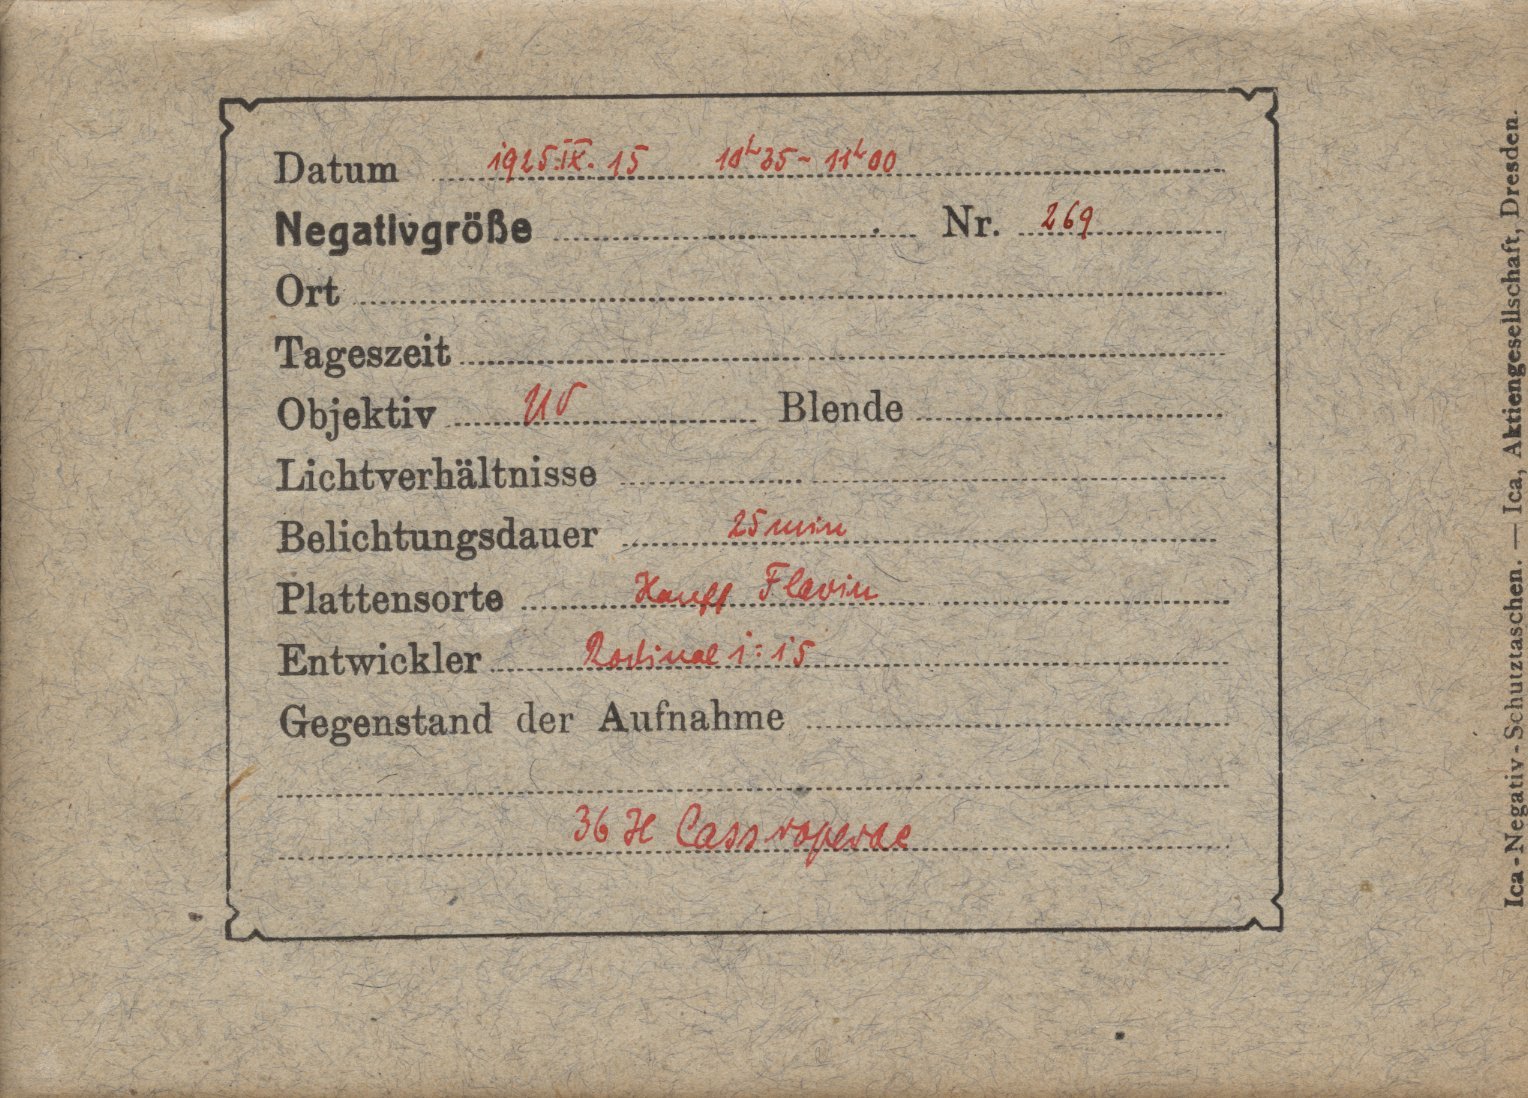 Datum 1925.IX.15 10h35 - 11h00
Negativgröße Nr. 269
Ort
Tageszeit
Objektiv UV Blende
Lichtverhältnisse
Belichtungsdauer 25 min
Plattensorte Hauff Flavin
Entwickler Rodinal 1:15
Gegenstand der Aufnahme
36 H Cassiopeiae
Ica-Negativ-Schutztaschen. — Ica, Aktiengesellschaft, Dresden.